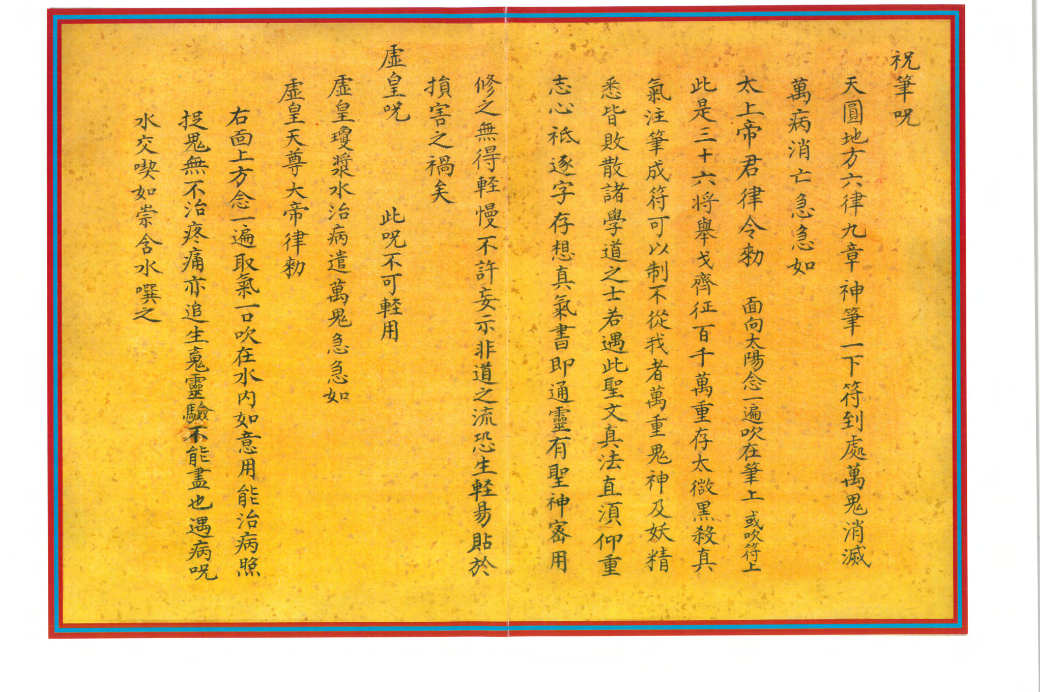 祝筆呪
天圓地方六律九章神筆一下符到處萬鬼消滅
萬病消亡急急如
太上帝君律令勑 面向太陽念一遍吹在筆上或吹符上
此是三十六将舉戈齊征百千萬重存太微黑殺真
氣注筆成符可以制不從我者萬重鬼神及妖精
悉皆敗散諸學道之士若遇此聖文真法直須仰重
志心祗逐字存想真氣書即通靈有聖神審用
修之無得軽慢不許妄示非道之流恐生軽易貽於
損害之禍矣
虛皇呪 此呪不可軽用
虛皇瓊漿水治病遣萬鬼急急如
虛皇天尊大帝律勑
右面上方念一遍取氣一口吹在水内如意用能治病照
捉鬼無不治疼痛亦追生䰟靈驗不能盡也遇病呪
水交喫如崇含水噀之